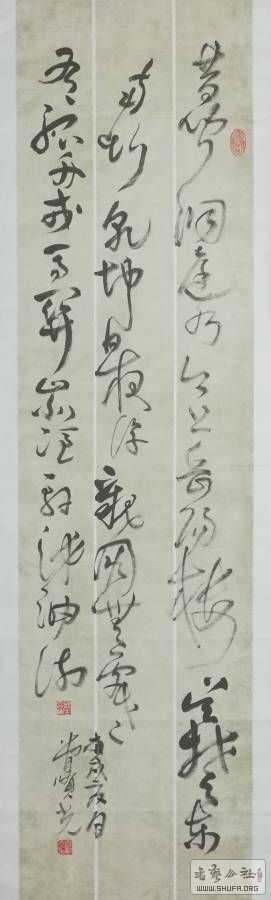 昔聞洞庭水今上岳陽樓吳楚東
南坼乾坤日夜浮親朋無一字老
有孤舟戎馬關山北憑軒涕泗流
戌夏日
書藝公社
WWW.SHUFA.ORG